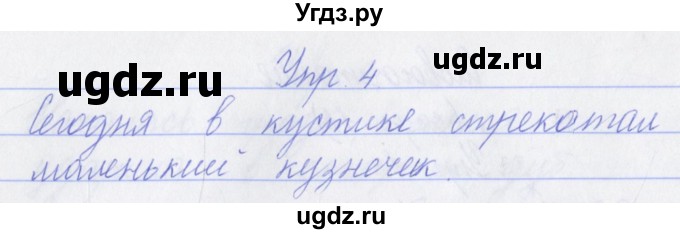 Угдз.ру
Упр. 4
ugdz.ru ugdz.ru
Сегодня в кустике стрекотал
маленький кузнечек.
ugdz.ru